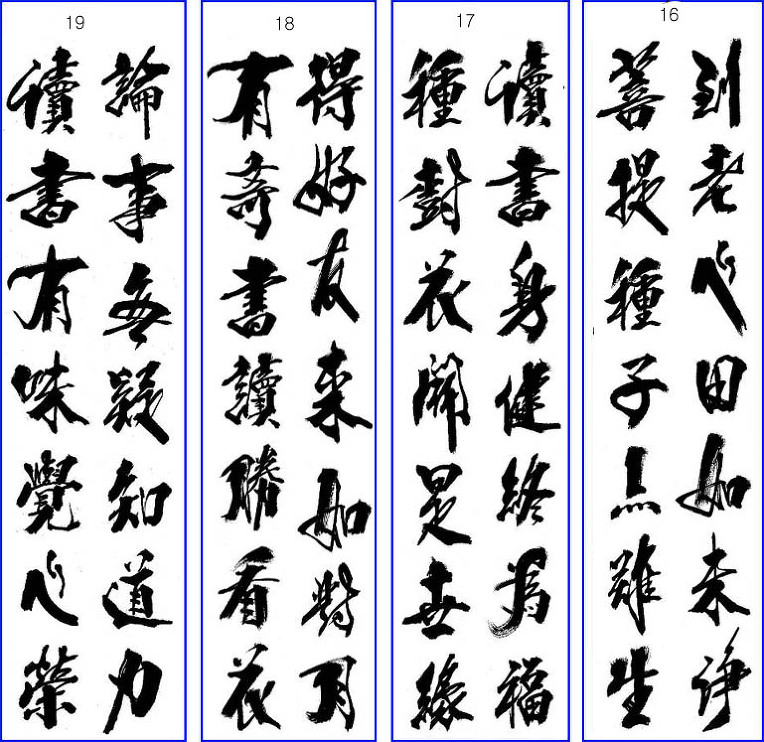 16
到老心田如未淨
菩提種子亦難生
17
讀書身健終為福
種樹花開是世緣
18
得好友來如對月
有奇書讀勝看花
19
論事無疑知道力
讀書有味覺心榮